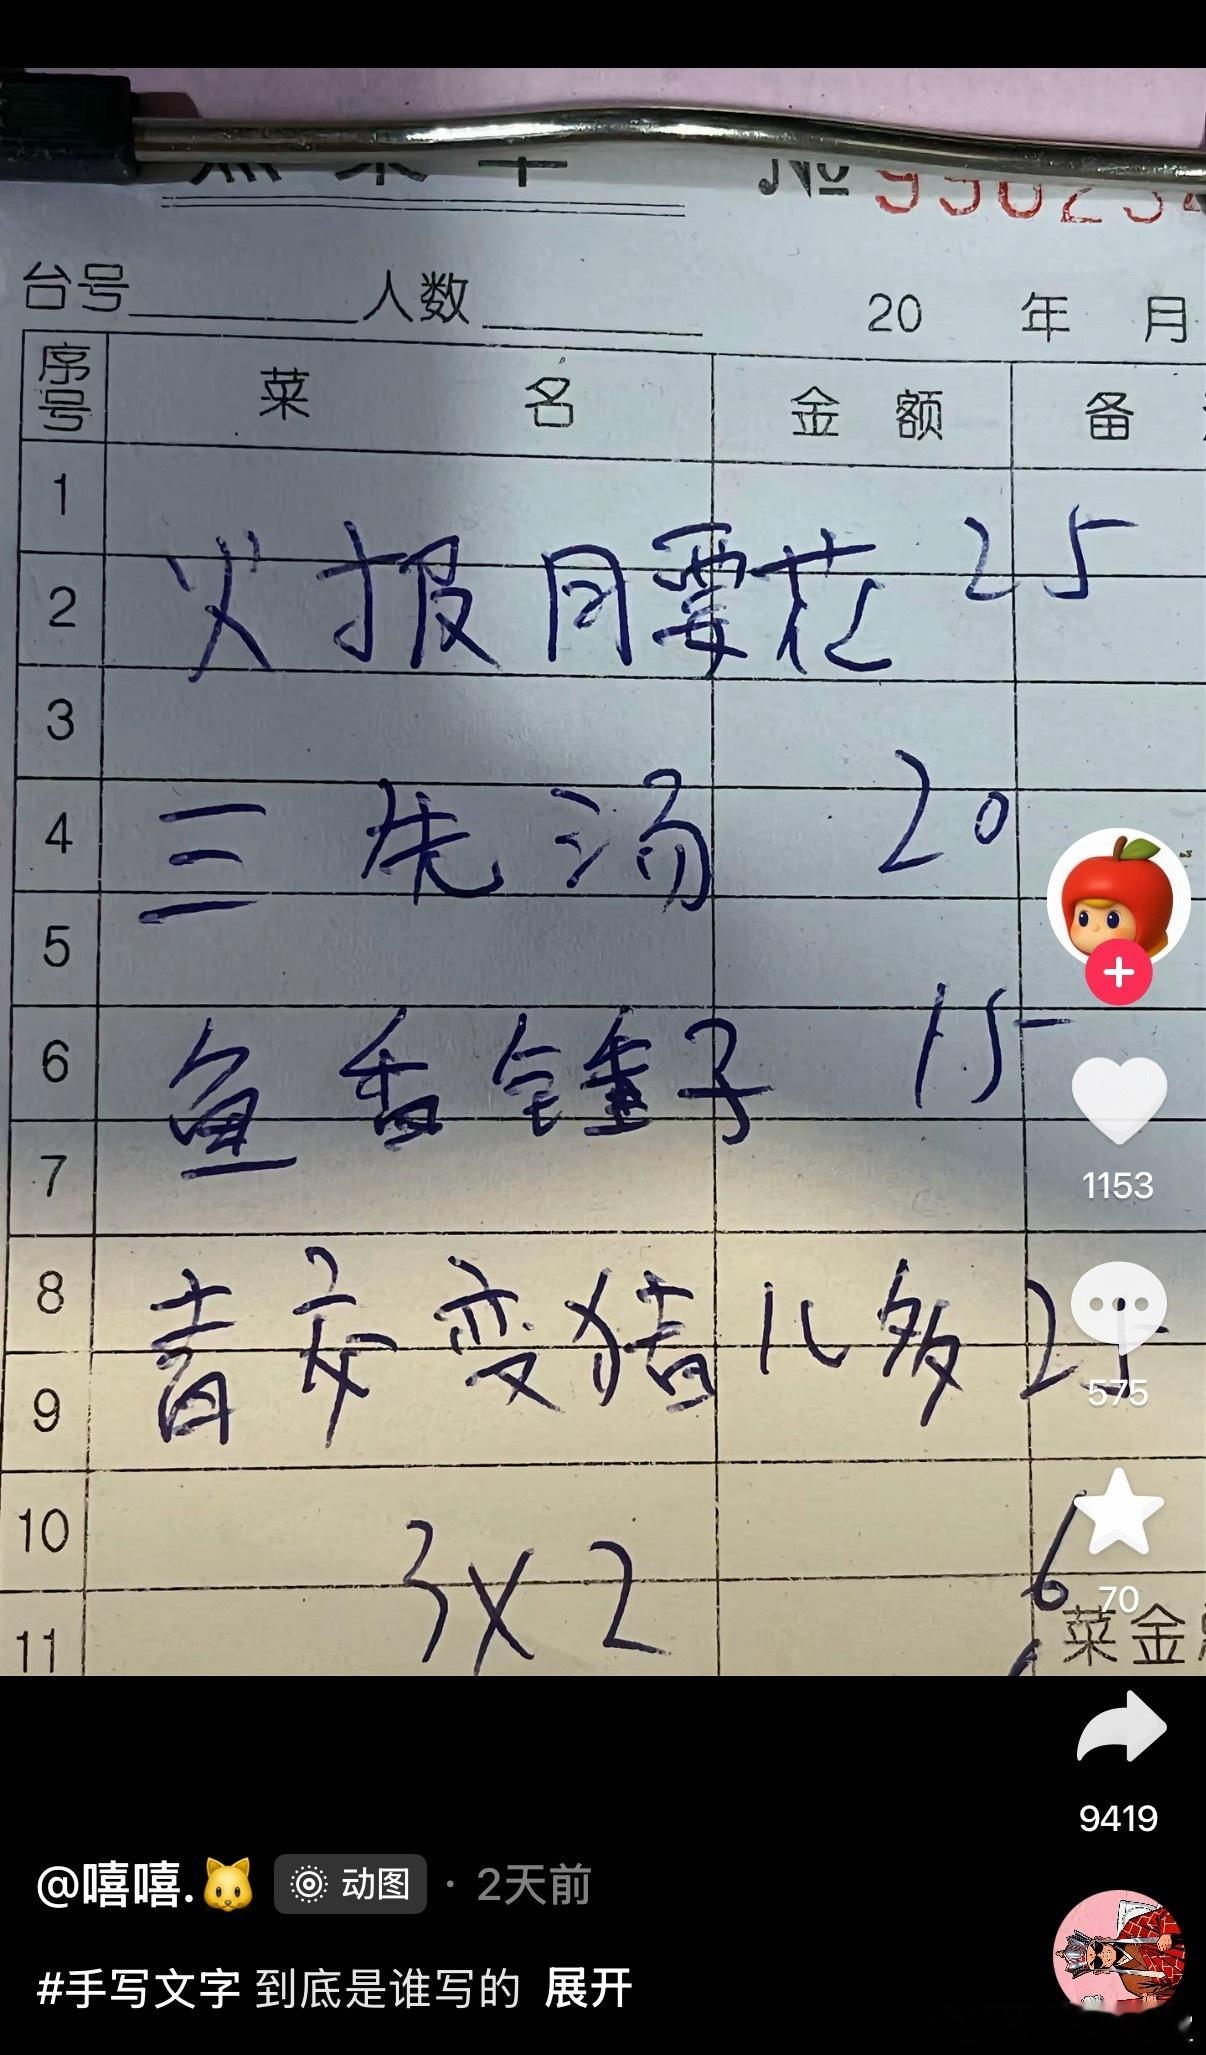 点菜单 № 9902
台号 人数 20 年 月
序号 菜名 金额 备
1
火报月要花 25
2
3
三先汤 20
4
5
鱼香锤子 15
6
7
青交变猪儿多 25
8
9
10
3x2 6
11
菜金
1153
575
70
9419
@嘻嘻. 动图 · 2天前
#手写文字 到底是谁写的 展开